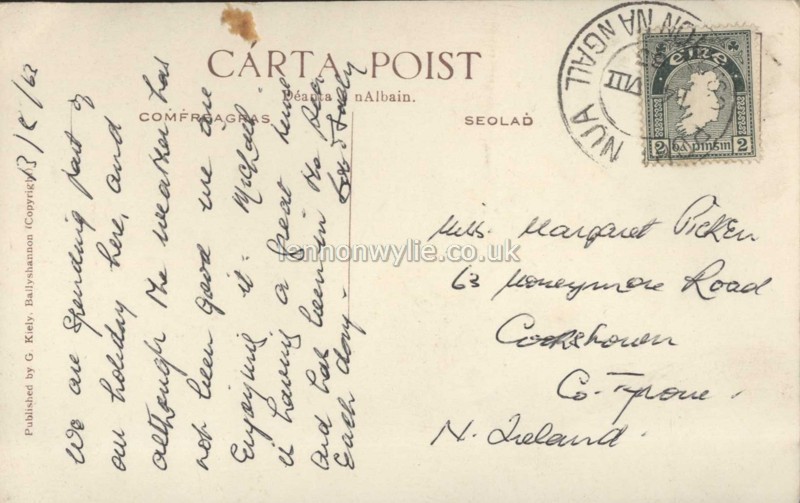 CÁRTA POIST
Déanta i nAlbain.
COMFREAGRAS
SEOLAD
Published by G. Kiely, Ballyshannon (Copyright)
We are spending part of
our holiday here, and
although the weather has
not been good we are
Enjoying it. Michael
is having a great time
and has been in the sea
Each day.
Miss. Margaret Picken
63 Moneymore Road
Cookstown
Co. Tyrone.
N. Ireland.
NUA
NA NGALL
VIII
éire
2 dá pinsin 2
lennonwylie.co.uk